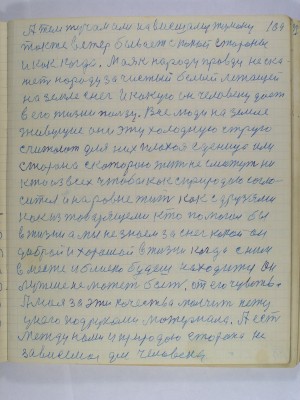 А тем тучам или нависшему туману 189
тоже ветер бывает с какой стороны
и как когда. Маяк народу правду не ска
жет народу за чистый белый лежащей
на земле снег и какую он человеку даст
в его жизни пользу. Все люди на земле
живущие они эту холодную
считают для них плохая и
сторона с которою жить не сможут ни
кто из всех чтобы как с природою согла
сится и наровне жить как с друзьями
кто помог бы
в жизни а мы не знаем за снег какой он
добрый и хороший в жизни когда с ним
в месте и близко будеш находится он
лучше не может быть, от его чувств.
А мы за эти качества молчим нету
у него под руками материала. А есть
между нами и природою сторона не
зависимая для человека